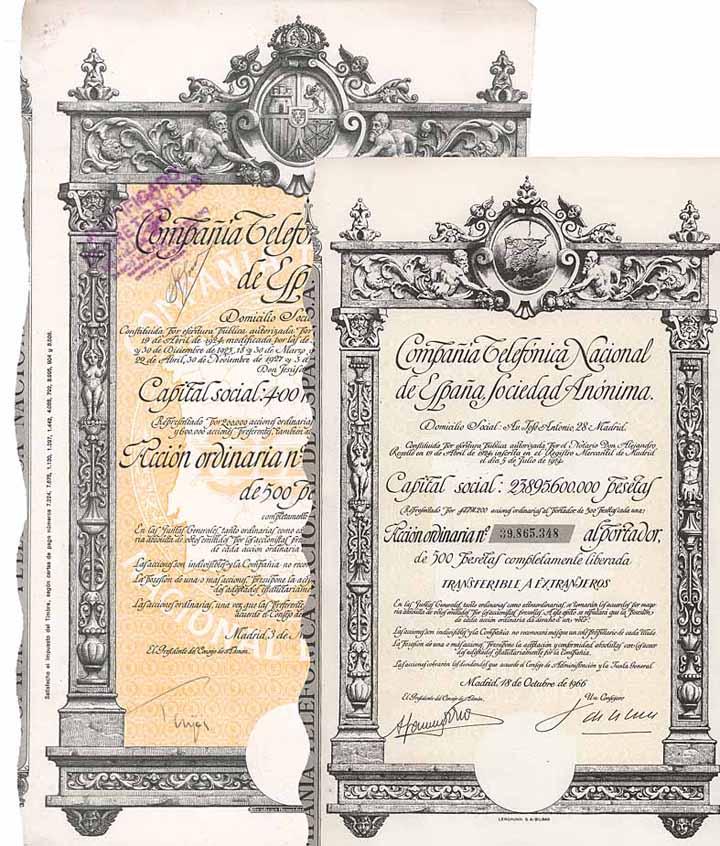 Compañia Telefón
de Esp
Domicilio Soci
Constituida por escritura pública autorizada por
19 de Abril de 1924, modificada por
y 30 de Diciembre de 1925, 18 y 30 de Marzo y
22 de Abril, 30 de Noviembre de 1927 y 3 d
Don Jesús
Capital social: 400 m
Representado por 200.000 acciones ordinarias
y 600.000 acciones preferentes, también a
Acción ordinaria nº
de 500 pe
completamente
En las Juntas Generales, tanto ordinarias como
ría absoluta de votos emitidos por los accionistas
de cada acción ordinaria
Las acciones son indivisibles y la Compañia no recon
La posesión de una o mas acciones, presupone la
des adoptados estatutariamente
Las acciones ordinarias, una vez que las preferente
acuerde el Consejo de
Madrid, 3 de N
El Presidente del Consejo de Admón.
Satisfecho el Impuesto del Timbre, según cartas de pago números
COMPAÑIA TELEFÓNICA NACIONAL DE ESPAÑA
Compañia Telefónica Nacional
de España, Sociedad Anónima.
Domicilio Social: Av. José Antonio, 28 Madrid.
Constituida por escritura pública autorizada por el Notario Don Alejandro
Roselló en 19 de Abril de 1924, inscrita en el Registro Mercantil de Madrid
el dia 5 de Julio de 1924.
Capital social: 23.895.600.000 pesetas
Representado por acciones ordinarias al portador de 500 pesetas cada una:
Acción ordinaria nº 39.865.348 al portador,
de 500 pesetas completamente liberada
TRANSFERIBLE A EXTRANJEROS
En las Juntas Generales, tanto ordinarias como extraordinarias, se tomarán los acuerdos por mayo
ría absoluta de votos emitidos por los accionistas presentes
de cada acción ordinaria da derecho a un voto.
Las acciones son indivisibles y la Compañia no reconocerá mas que un solo propietario de cada título
La posesión de una o mas acciones, presupone la aceptación y conformidad absolutas con los acuer
dos adoptados estatutariamente por la Compañia.
Las acciones cobrarán los dividendos que acuerde el Consejo de Administración y la Junta General
Madrid, 18 de Octubre de 1966
El Presidente del Consejo de Admón.
Un Consejero
LERCHUNDI, S. A.-BILBAO